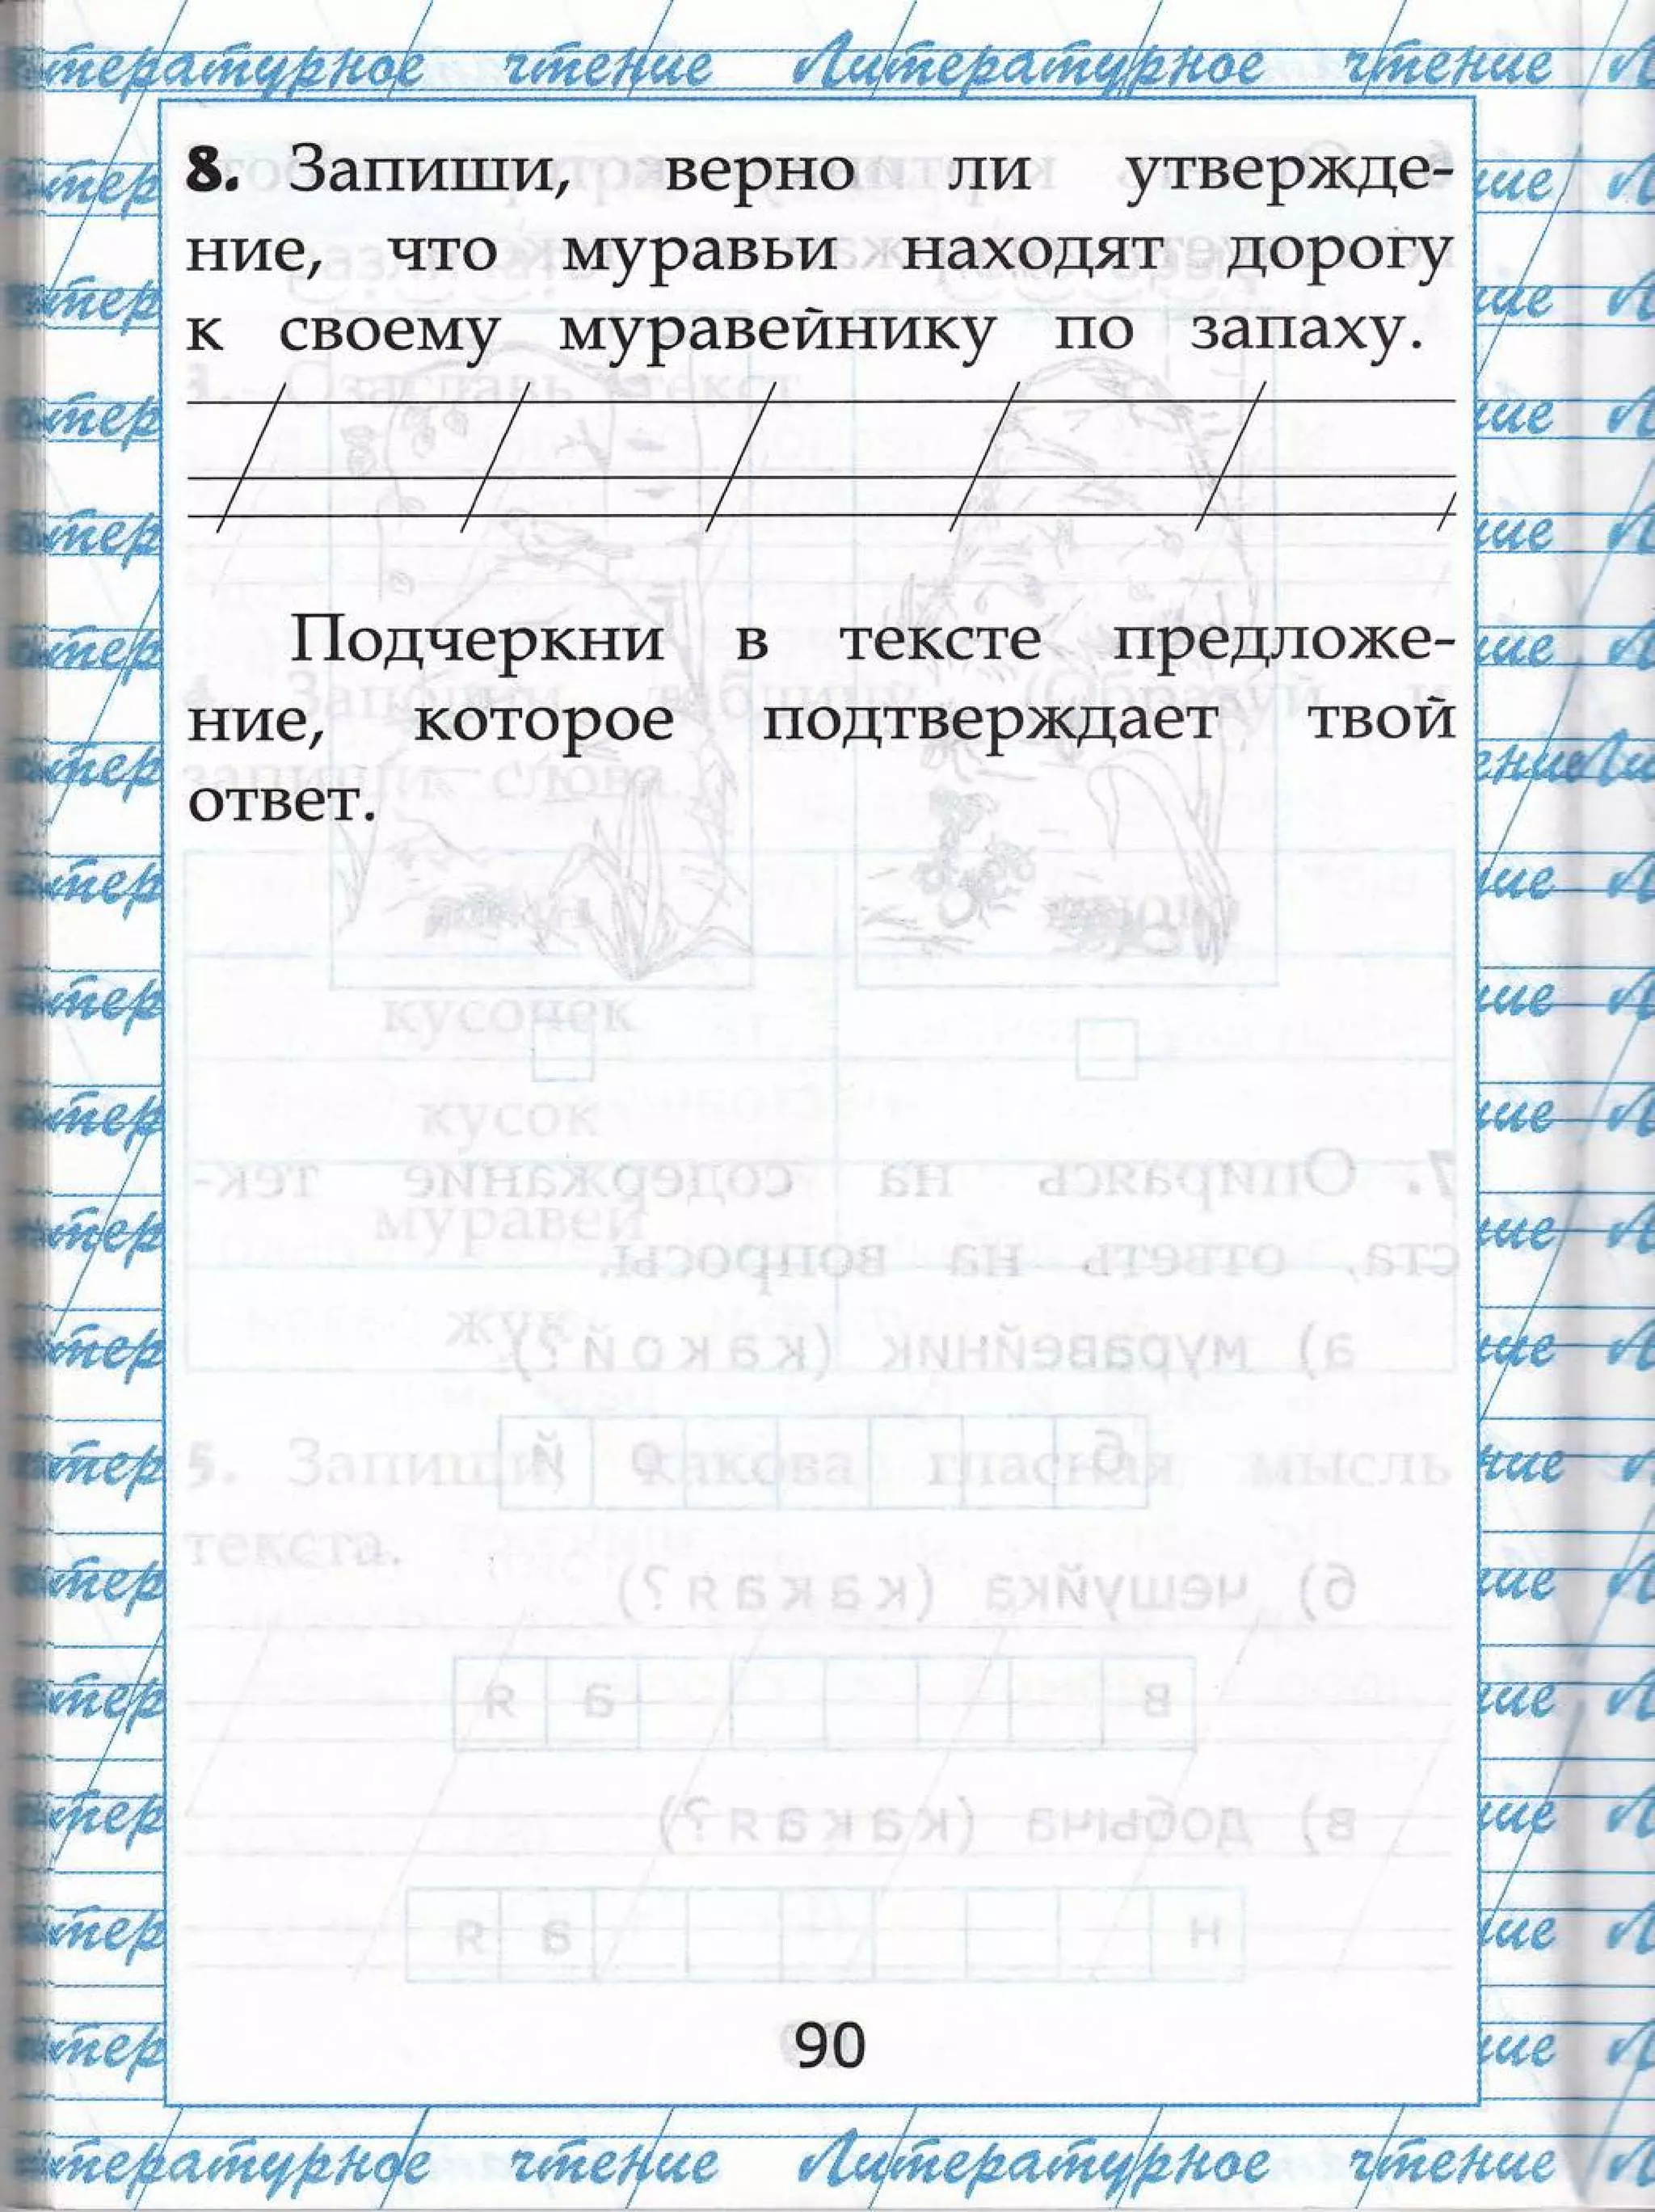 Литературное чтение Литературное чтение
8. Запиши, верно ли утвержде-
ние, что муравьи находят дорогу
к своему муравейнику по запаху.
Подчеркни в тексте предложе-
ние, которое подтверждает твой
ответ.
90
Литературное чтение Литературное чтение